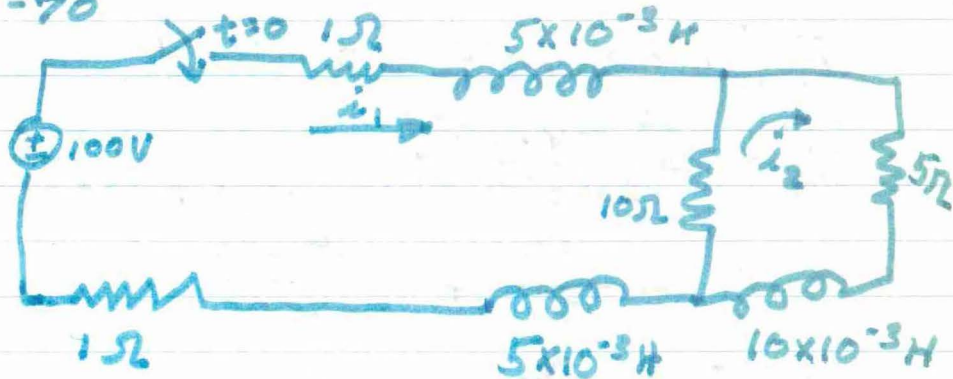 -70
t=0 1Ω 5×10⁻³ H
i₁
± 100V
i₂
10Ω
5Ω
1Ω
5×10⁻³ H
10×10⁻³ H